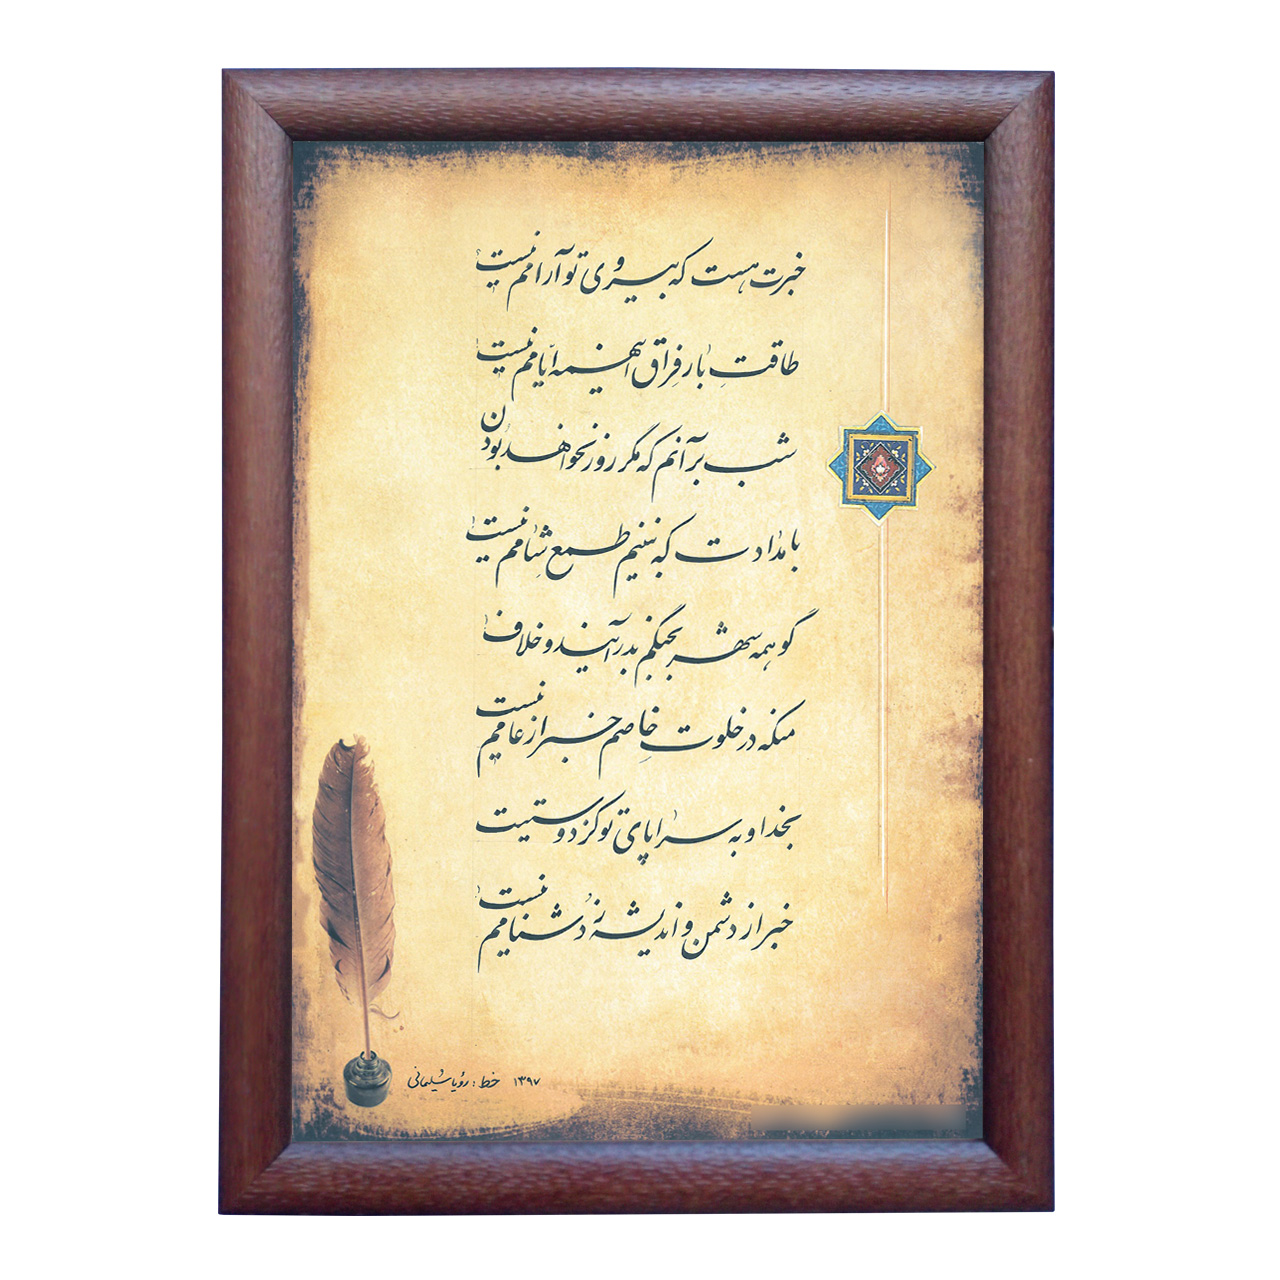 خبرت هست که بی روی تو آرامم نیست
طاقتِ بار فِراق اینهمه ایّامم نیست
شب بر آنم که مگر روز نخواهد بودن
بامدادت که نبینم طمع شِامم نیست
گو همه شهر بجنگم بدرآیند و خلاف
منکه در خلوتِ خاصم خبر از عامم نیست
بخدا و به سراپای تو کز دوستیت
خبر از دشمن و اندیشه ز دشنامم نیست
خط : رؤیا سلیمانی ۱۳۹۷